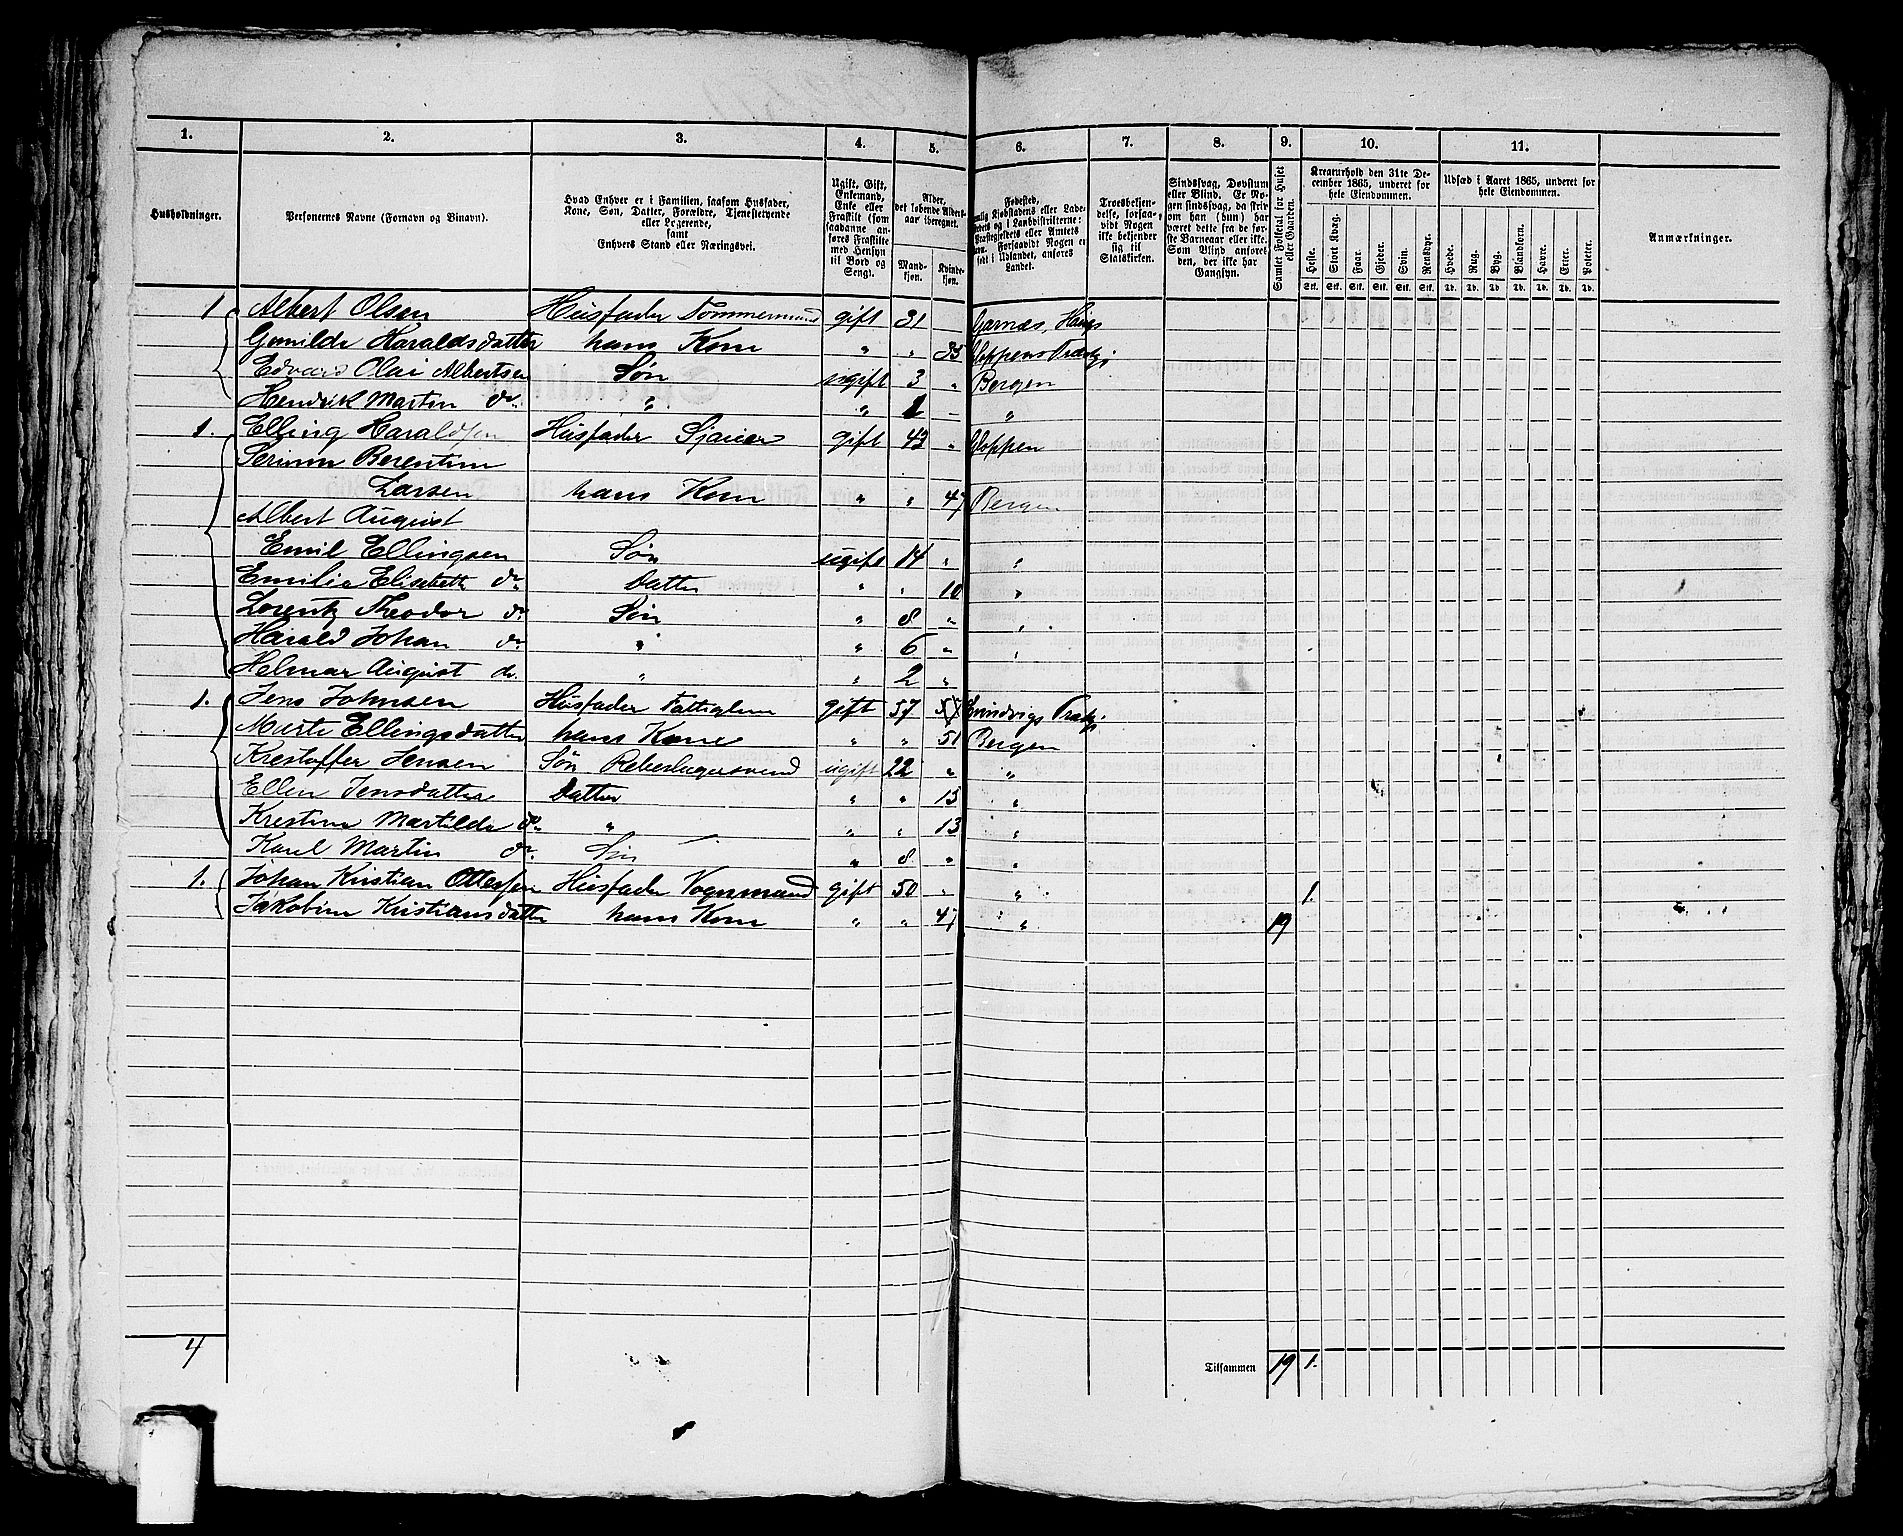 1. 2. 3. 4. 5. 6. 7. 8. 9. 10. 11.
Husholdninger.
Personernes Navne (Fornavn og Binavn).
Hvad Enhver er i Familien, saasom Husfader,
Kone, Søn, Datter, Forældre, Tjenestetyende
eller Logerende,
samt
Enhvers Stand eller Næringsvei.
Ugift, Gift,
Enkemand,
Enke eller
Fraskilt (som
saadanne an-
føres Fraskilte
med Hensyn
til Bord og
Seng).
Alder,
det løbende Alders-
aar iberegnet.
Mand-
kjøn.
Kvinde-
kjøn.
Fødested,
Kjøbstadens eller Lade-
og i Landdistrikterne:
Præstegjeldets eller Amtets
Navn. Forsaavidt Nogen er
født i Udlandet, anføres
Landet.
Troesbekjen-
delse, forsaa-
vidt Nogen
ikke bekjender
sig til
Statskirken.
Sindssvag, Døvstum
eller Blind. Er No-
gen sindssvag, da skriv
om han (hun) har
været dette fra de før-
ste Barneaar eller ikke.
Som Blind anføres
den, der ikke har
Gangsyn.
Samlet Folketal for Huset
eller Gaarden.
Kreaturhold den 31te De-
cember 1865, underet for
hele Eiendommen.
Heste. Stort Kvæg. Faar. Gjeder. Svin. Rensdyr.
Stk. Stk. Stk. Stk. Stk. Stk.
Udsæd i Aaret 1865, underet for
hele Eiendommen.
Hvede. Rug. Byg. Blandkorn. Havre. Erter. Poteter.
Td. Td. Td. Td. Td. Td. Td.
Anmærkninger.
1 Albert Olsen Husfader Tømmermand gift 31 Garnæs, Haugs
Gunilde Haraldsdatter hans Kone " " 35 Gloppens Præstgj
Edvard Olai Albertsen Søn ugift 3 " Bergen
Hendrik Marten do. " " 1 "
1. Elling Haraldsen Husfader Sjauer gift 43 " Gloppen
Serine Berentine
Larsen hans Kone " " 47 Bergen
Albert August
Emil Ellingsen Søn ugift 14 " "
Emilie Elisabeth do Datter " " 10 "
Lorentz Theodor do Søn " 8 " "
Harald Johan do " " 6 " "
Helmar August do. " " 2 "
1. Jens Johnsen Husfader Fattiglem gift 57 57 Evindvigs Præstgj
Marte Ellingsdatter hans Kone " " 51 Bergen
Krestoffer Jensen Søn Rebslagersvend ugift 22 " "
Ellen Jensdatter Datter " " 13 "
Krestine Martilde do " " " 13 "
Karel Martin do. Søn " 8 " "
1. Johan Kristian Ottessen Husfader Vognmand gift 50 " " 1.
Jakobine Kristiansdatter hans Kone " " 47 " 19
4 Tilsammen 19 1.